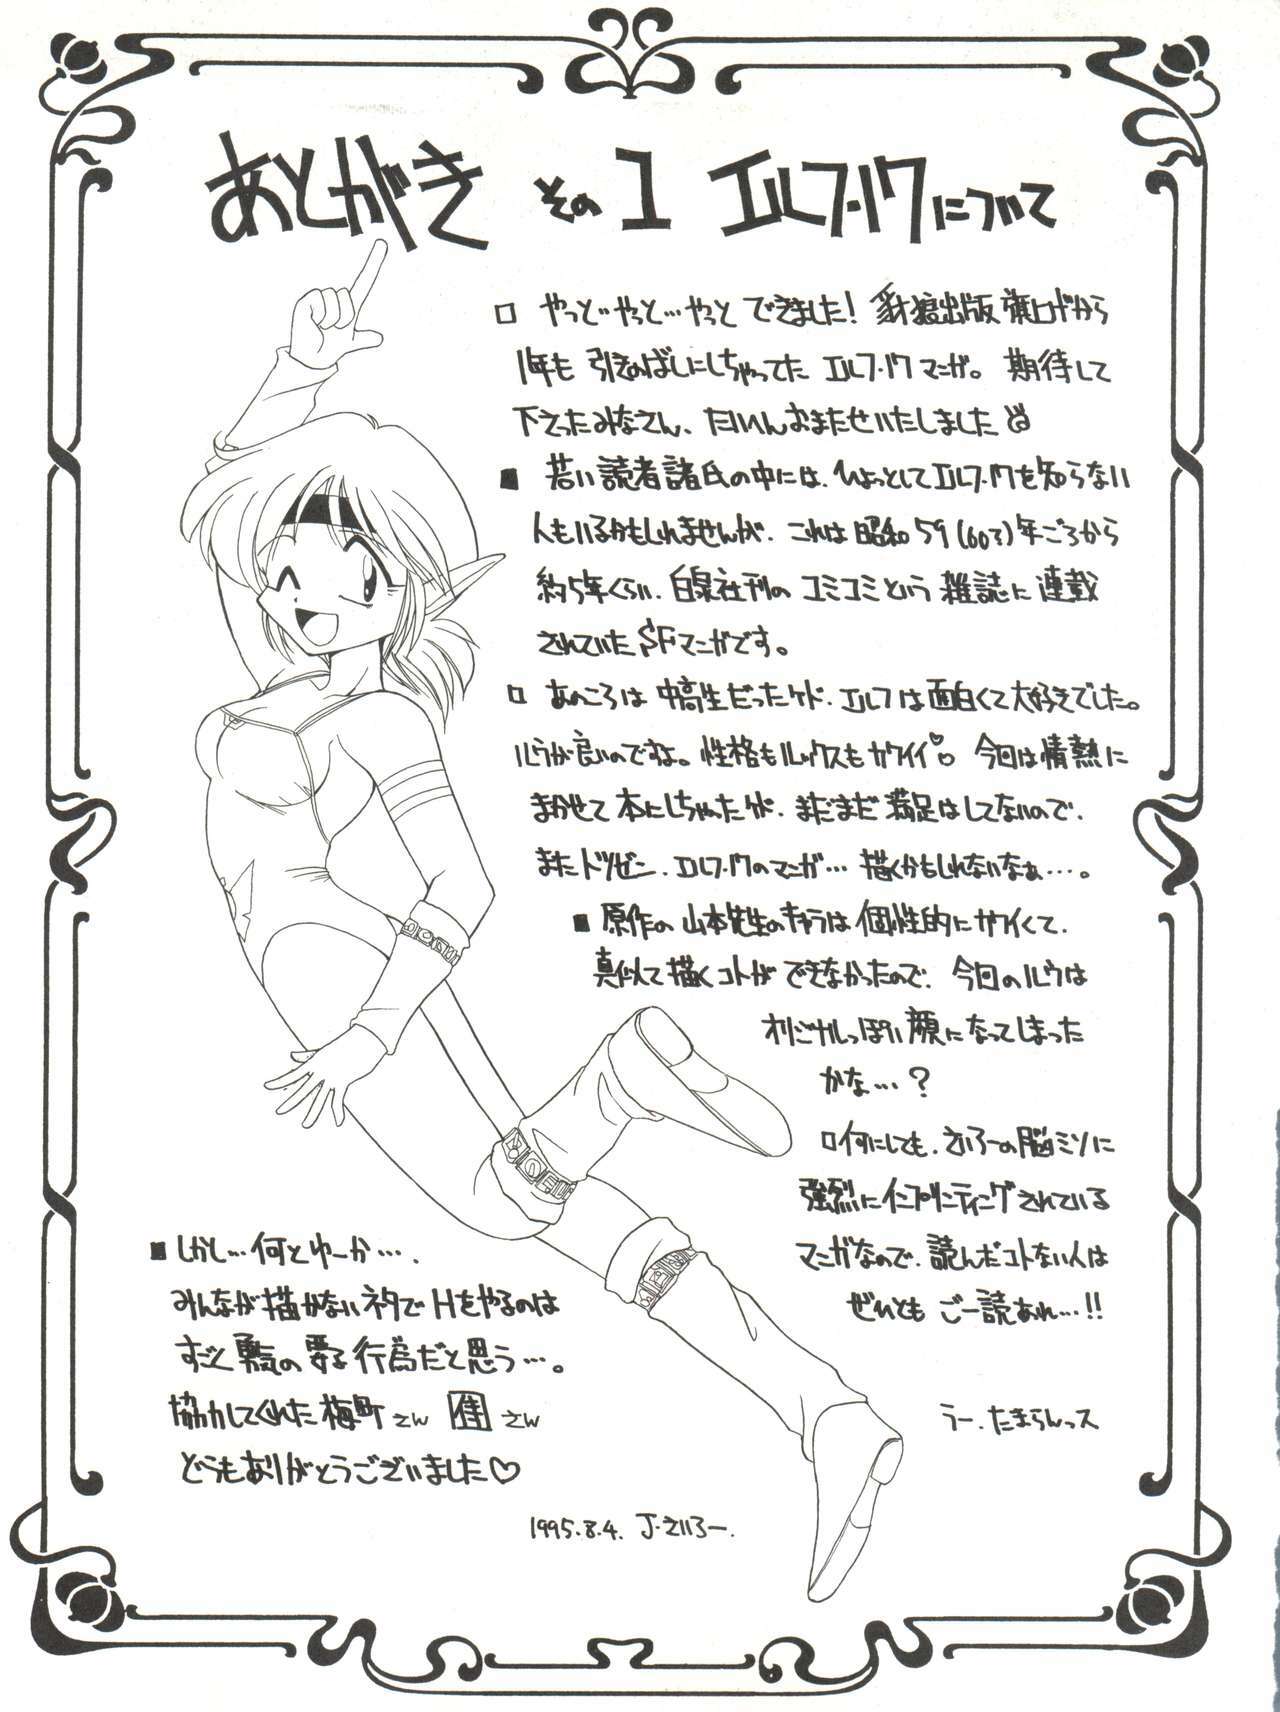 あとがき その1 エルフ・17について
□ やっと…やっと…やっと できました! 豺狼出版 旗上げから
1年も 引きのばしにしちゃってた エルフ・17 マンガ。 期待して
下さったみなさん、たいへんおまたせいたしました
■ 若い読者諸氏の中には、ひょっとしてエルフ・17を知らない
人もいるかもしれませんが、これは 昭和59(60?)年ごろから
約5年くらい、白泉社刊の コミコミという 雑誌に 連載
されていた SFマンガです。
□ あのころは 中高生だったケド、エルフは面白くて大好きでした。
ルウが良いのですよ。性格もルックスもカワイイ♡。 今回は情熱に
まかせて 本にしちゃったケド、まだまだ 満足はしてないので、
またトツゼン、エルフ・17のマンガ… 描くかもしれないなぁ…。
■ 原作の 山本先生のキャラは 個性的にカワイくて、
真似て描くコトが できなかったので、今回のルウは
オリジナルっぽい顔になってしまった
かな…?
□何にしても、さいろーの脳ミソに
強烈にインプリンティングされている
マンガなので、読んだコトない人は
ぜひとも ご一読あれ…!!
■ しかし… 何とゆーか…、
みんなが描かないネタで Hをやるのは
すごく 勇気の 要る 行為だと思う…。
協力してくれた 梅町さん 佳さん
どうもありがとうございました♡
うー、たまらんっス
1995.8.4. J・さいろー.